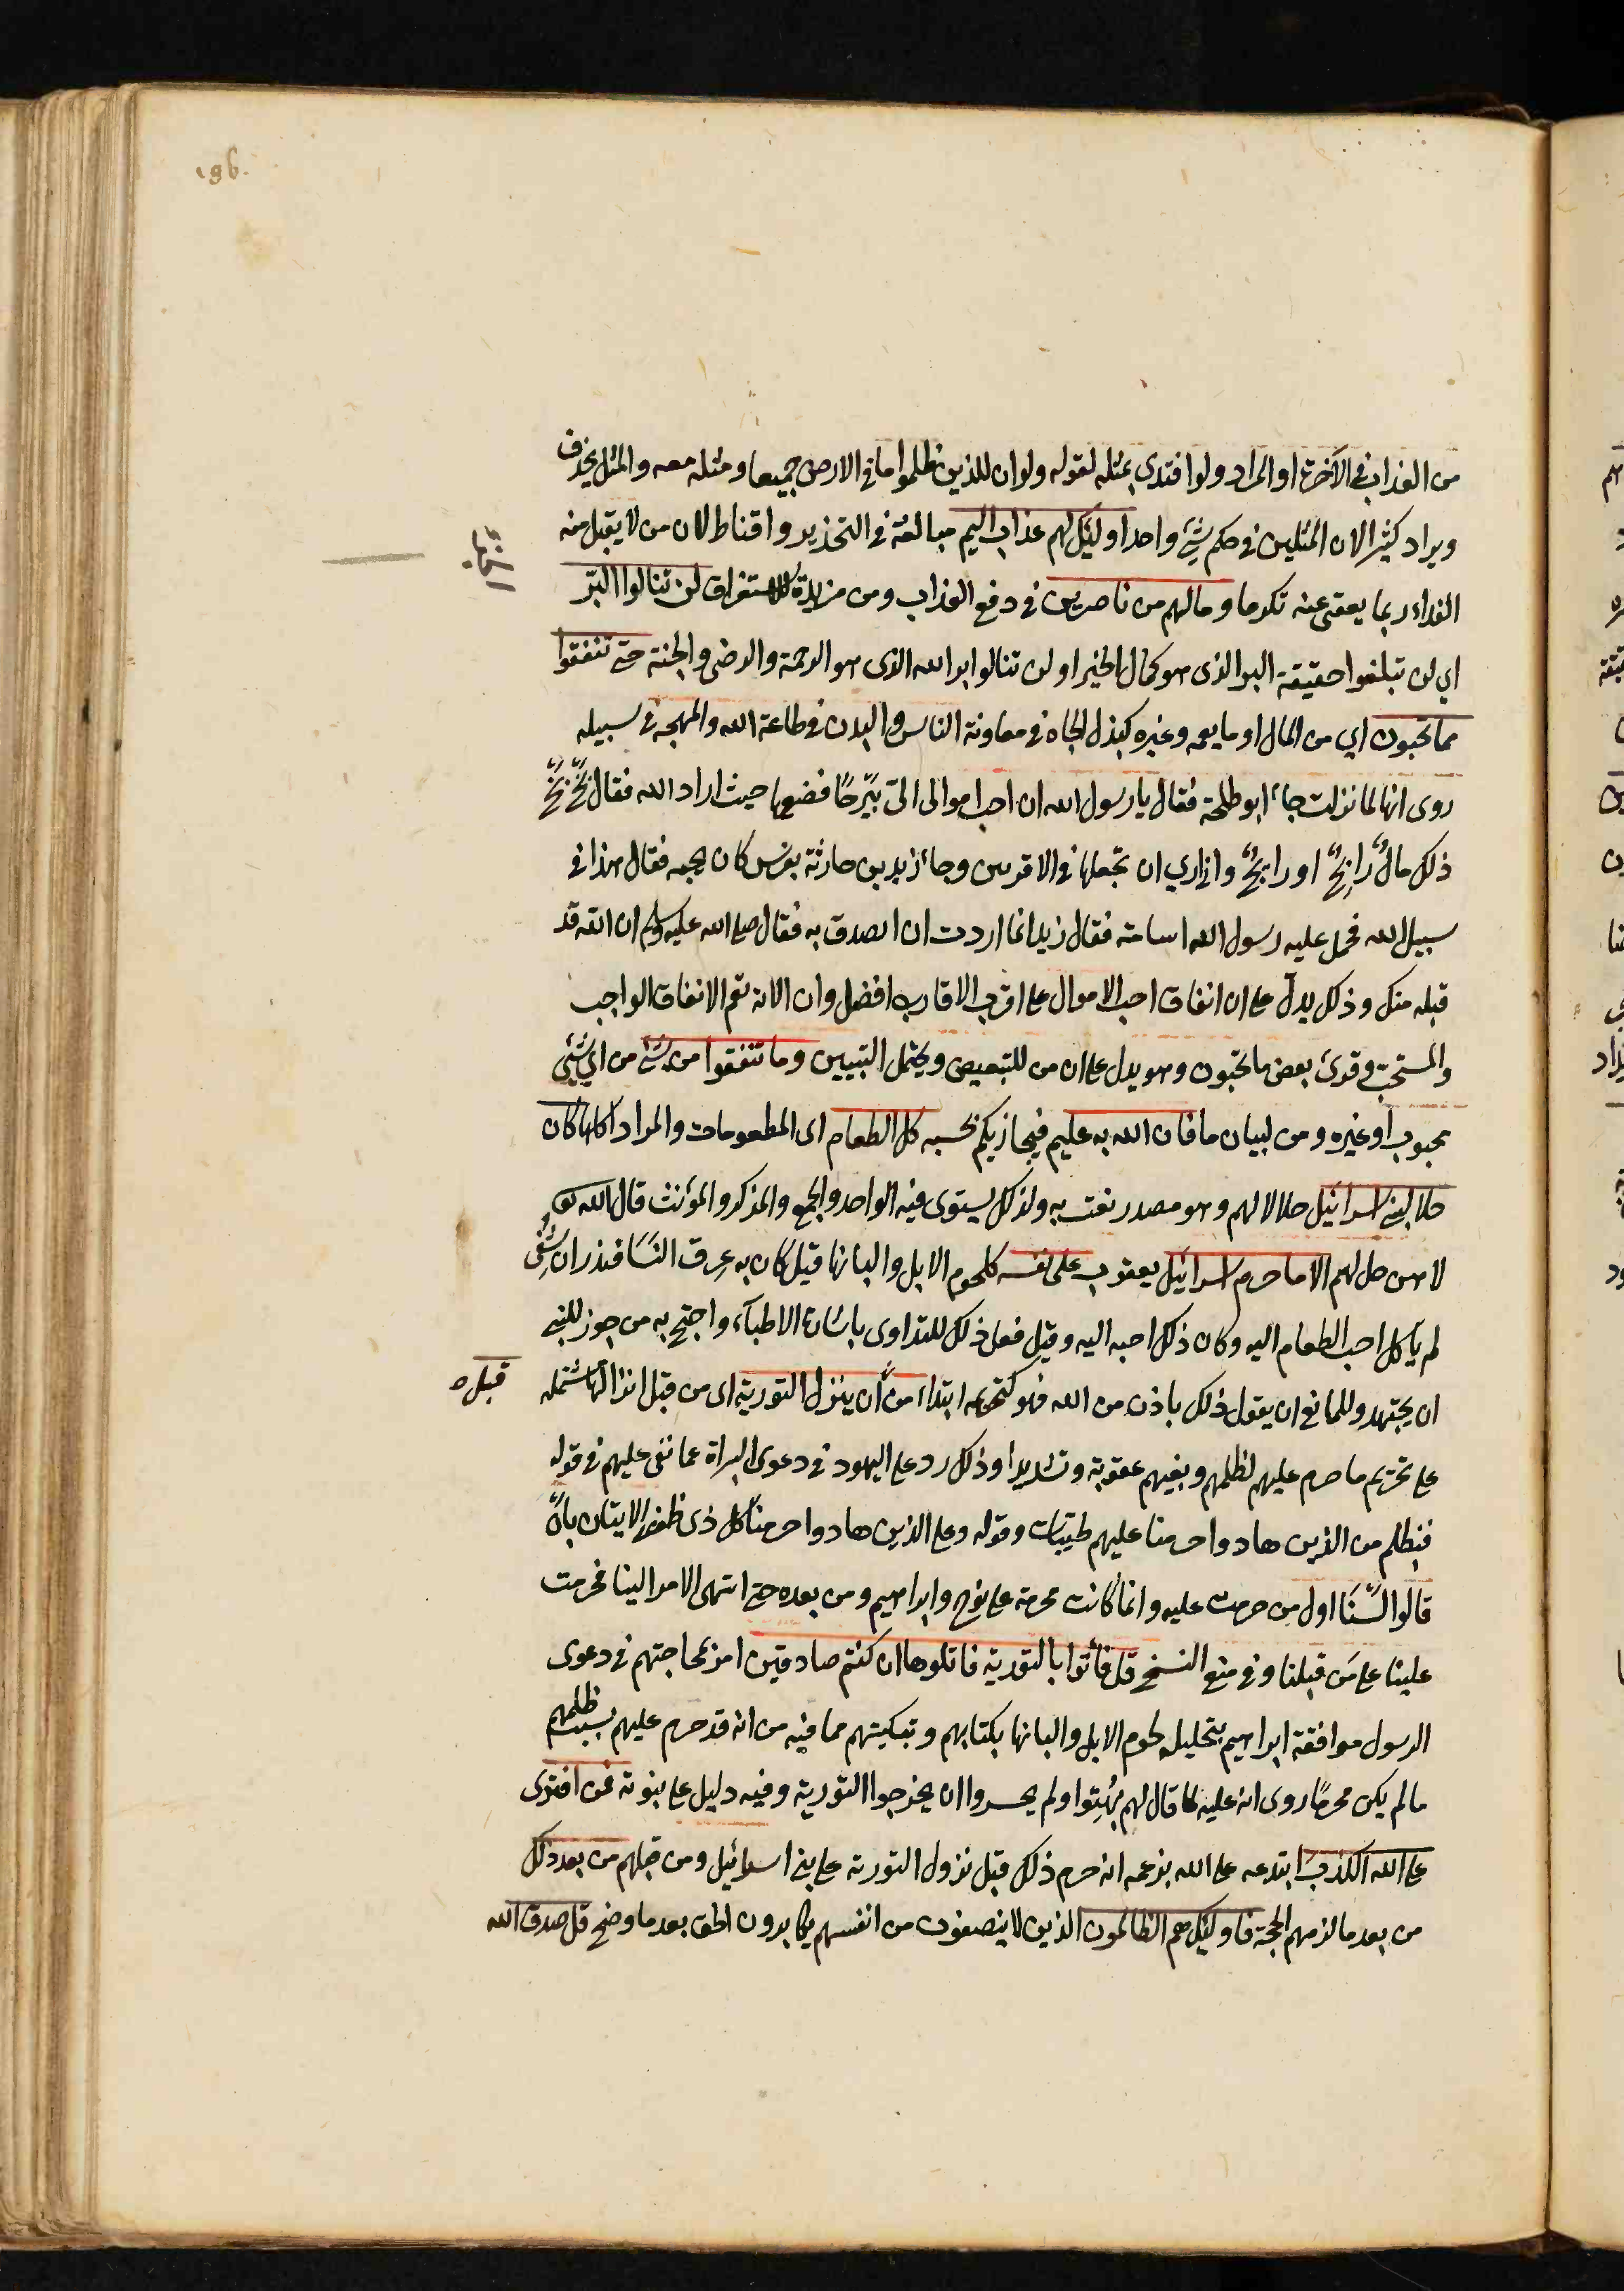 196.
من العذاب في الآخرة او المراد ولو افتدى بمثله لقوله ولو ان للذين ظلموا ما في الارض جميعا ومثله معه والمثل يحذف
ويراد كثيرا لان المثلين في حكم شئ واحد اولئك لهم عذاب اليم مبالغة في التحذير واقناط لان من لا يقبل منه
الجزء
الفداء ربما يعفى عنه تكرما وما لهم من ناصرين في دفع العذاب ومن مزيدة للاستغراق لن تنالوا البرّ
اي لن تبلغوا حقيقة البر الذى هو كمال الخير او لن تنالوا بر الله الذى هو الرحمة والرضى والجنة حتى تنفقوا
مما تحبون اي من المال او ما يعمه وغيره كبذل الجاه في معاونة الناس والبدن في طاعة الله والمهجة في سبيله
روى انها لما نزلت جاء ابو طلحة فقال يا رسول الله ان احب اموالى الىّ بَيْرَحًا فضعها حيث اراد الله فقال بَخٍّ بَخٍّ
ذلك مالٌ رابحٌ او رايحٌ وانى اري ان تجعلها في الاقربين وجاء زيد بن حارثة بفرس كان يحبه فقال هذا في
سبيل الله فحمل عليه رسول الله اسامة فقال زيد انما اردت ان اتصدق به فقال صلى الله عليه وسلم ان الله قد
قبله منك وذلك يدل على ان انفاق احب الاموال على اقرب الاقارب افضل وان الاية تعم الانفاق الواجب
والمستحب وقرئ بعض ما تحبون وهو يدل على ان من للتبعيض ويحتمل التبيين وما تنفقوا من شئ من اي شئ
محبوب او غيره ومن لبيان ما فان الله به عليم فيجازيكم بحسبه كل الطعام اى المطعومات والمراد اكلها كان
حلا لبنى اسرائيل حلالا لهم وهو مصدر نعت به ولذلك يستوى فيه الواحد والجمع والمذكر والمؤنث قال الله تع
لا هن حل لهم الا ما حرم اسرائيل يعقوب على نفسه كلحوم الابل والبانها قيل كان به عِرق النَسَا فنذر ان شُفِى
لم ياكل احب الطعام اليه وكان ذلك احبه اليه وقيل فعل ذلك للتداوى باشارة الاطبآء واحتج به من جوز للنبى
ان يجتهد وللمانع ان يقول ذلك باذن من الله فهو كتحريمه ابتداء من ان ينزل التورية اى من قبل انزالها مشتملة
قبل ه
على تحريم ما حرم عليهم لظلمهم وبغيهم عقوبة وتشديدا وذلك رد على اليهود في دعوى البراة عما نعى عليهم في قوله
فبظلم من الذين هادوا حرمنا عليهم طيبات وقوله وعلى الذين هادوا حرمنا كل ذى ظفر الايتان بان
قالوا لَسْنَا اول من حرمت عليه وانما كانت محرمة على نوح وابراهيم ومن بعده حتى انتهى الامر الينا فحرمت
علينا على مَن قبلنا وفي منع النسخ قل فأتوا بالتورية فاتلوها ان كنتم صادقين امر بمحاجتهم في دعوى
الرسول موافقة ابراهيم بتحليله لحوم الابل والبانها بكتابهم وتبكيتهم مما فيه من انه قد حرم عليهم بسبب ظلمهم
ما لم يكن محرمًا روى انه عليه لما قال لهم بُهِتوا ولم يجسروا ان يخرجوا التورية وفيه دليل على نبوته فمن افترى
على الله الكذب ابتدعه على الله بزعمه انه حرم ذلك قبل نزول التورية على بنى اسرائيل ومن قبلهم من بعد ذلك
من بعد ما لزمهم الحجة فاولئك هم الظالمون الذين لا ينصفون من انفسهم يكابرون الحق بعد ما وضح قل صدق الله